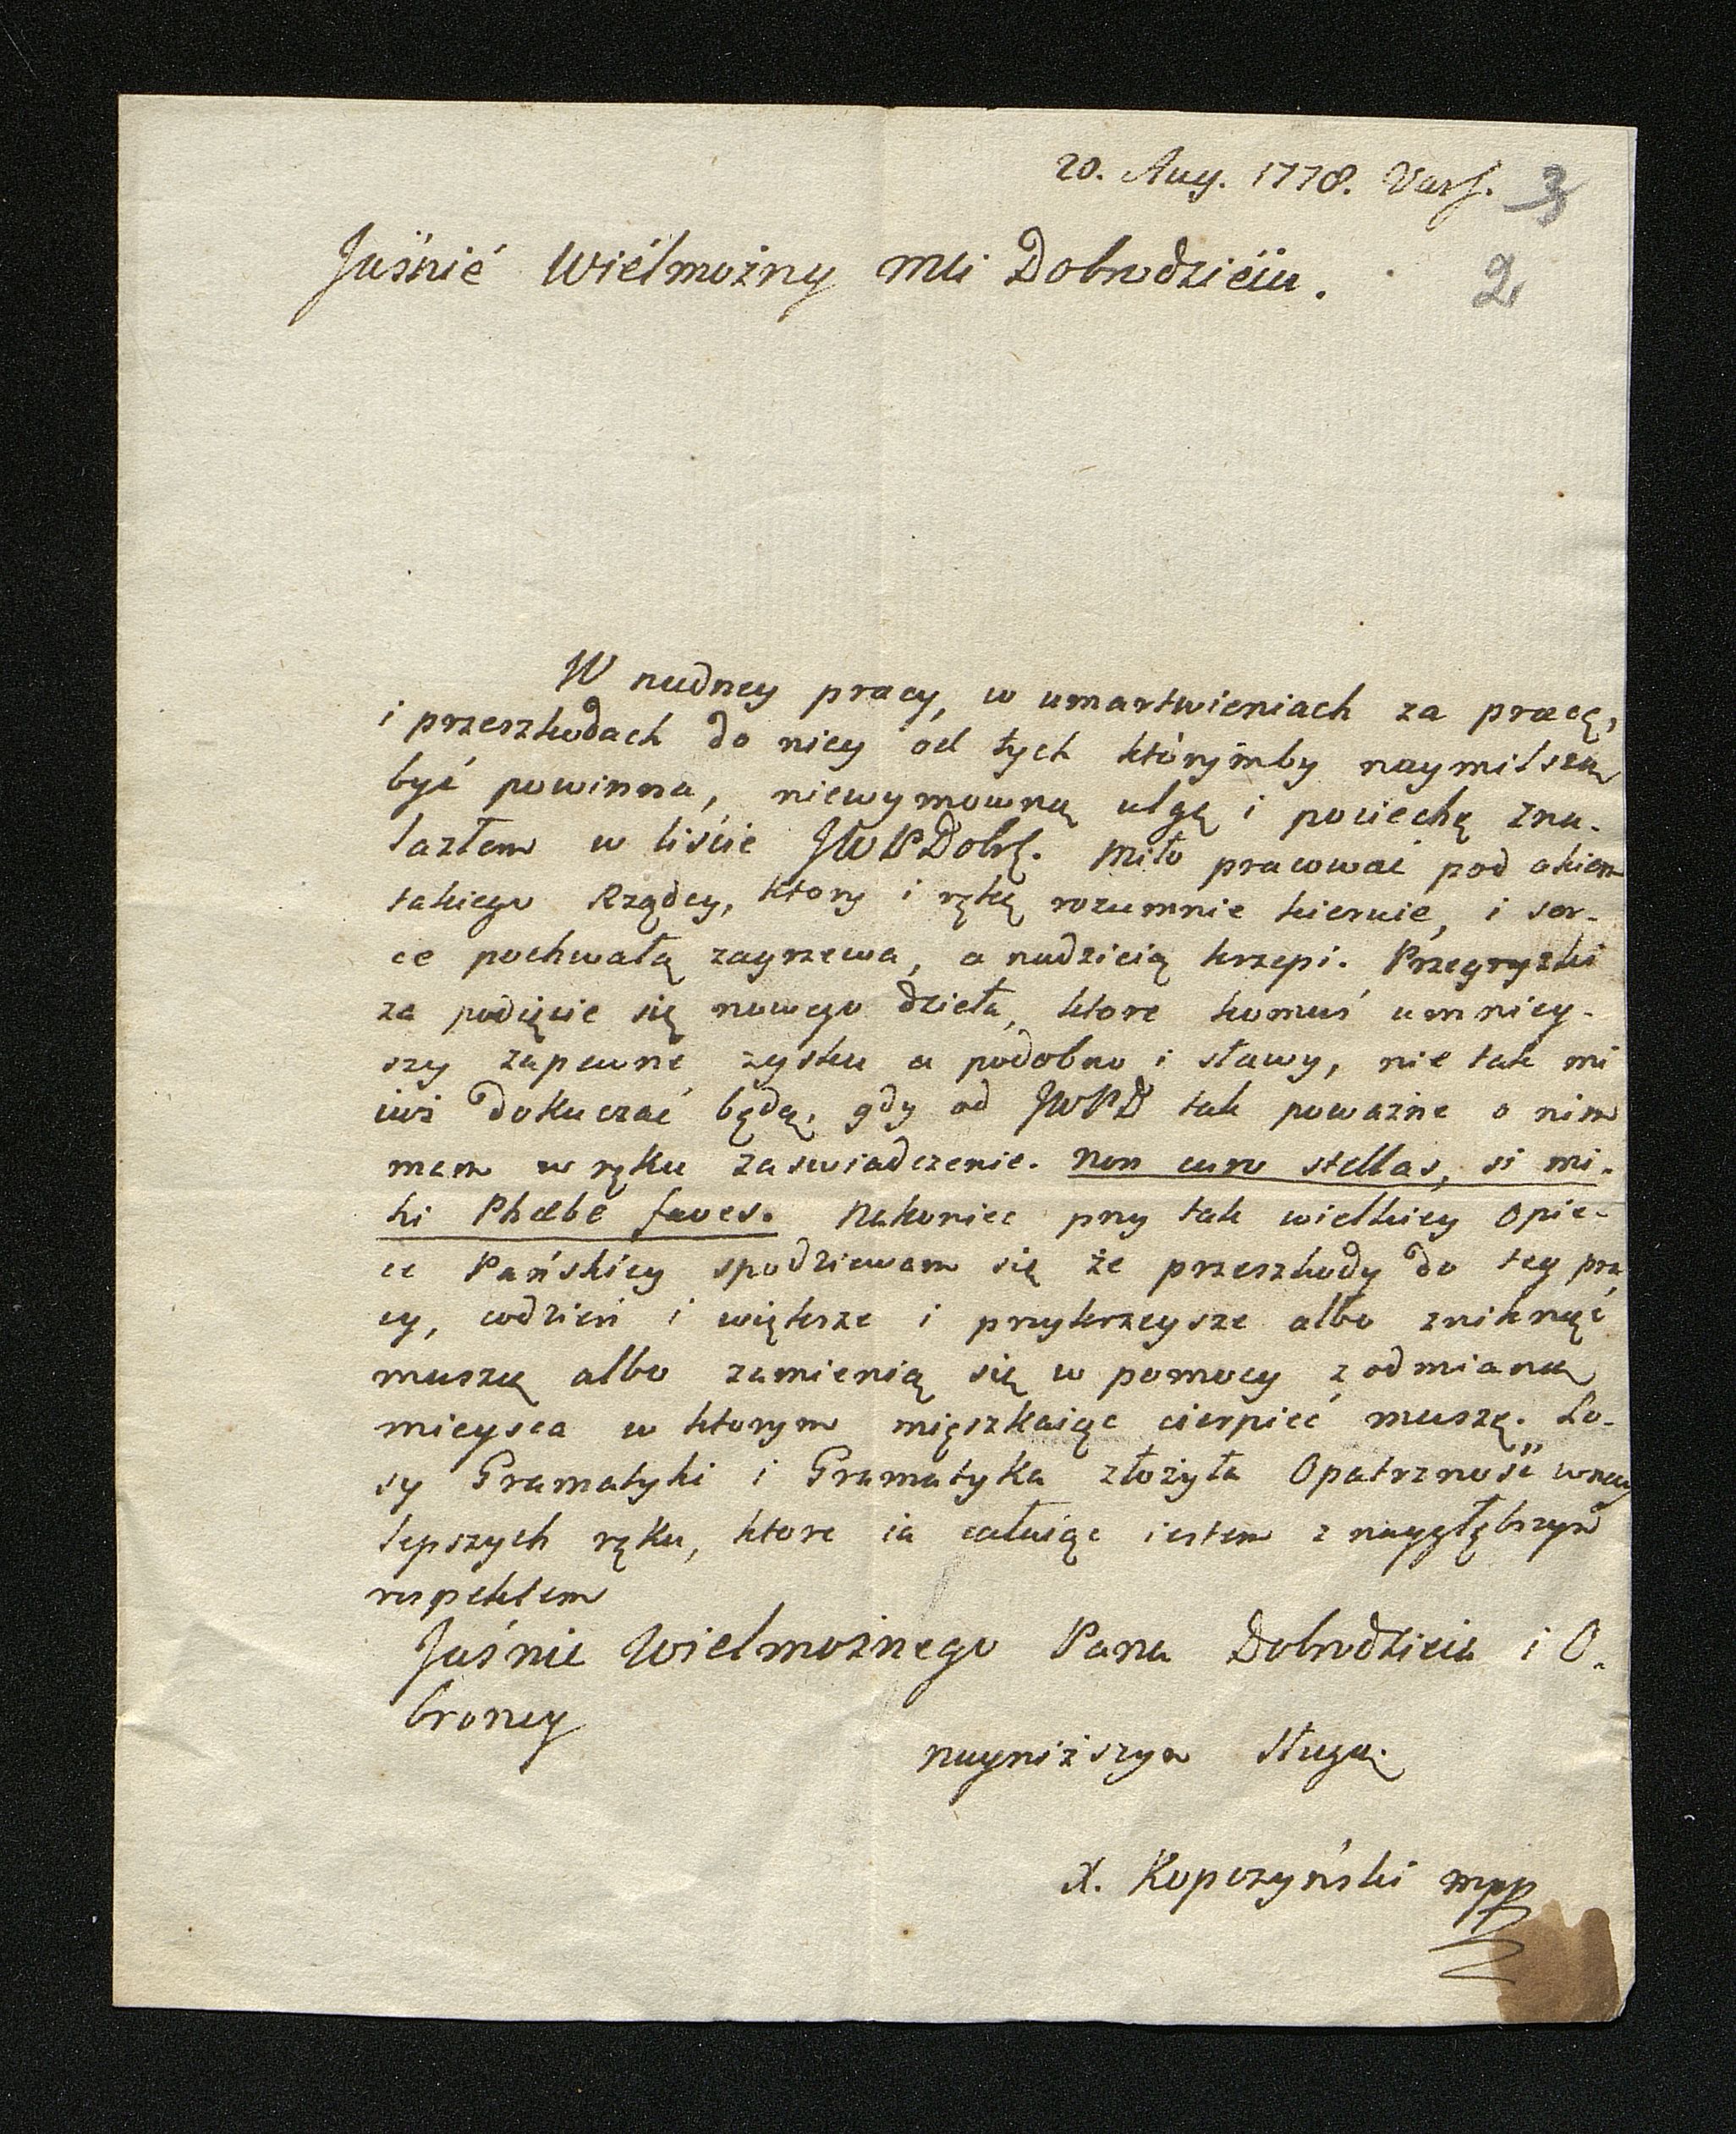 20. Aug. 1778. Vars.
3
2
Jaśnié Wiélmożny Mci Dobrodziéiu.
W nudney pracy, w umartwieniach za pracę,
i przeszkodach do niey od tych którymby naymilszą
być powinna, niewymowną ulgę i pociechę zna-
lazłem w liście JWPDobr. Miło pracować pod okiem
takiego Rządcy, ktory i rękę rozumnie kieruie, i ser-
ce pochwałą zagrzewa, a nadzieią krzepi. Przegryzki
za podięcie się nowego dzieła, ktore komuś umniey-
szy zapewne zysku a podobno i sławy, nie tak mi
iuż dokuczać będą, gdy od JWPD tak poważne o nim
mam w ręku zaswiadczenie. Non curo stellas, si mi-
hi Phœbe faves. Nakoniec przy tak wielkiey Opie-
ce Pańskiey spodziewam się że przeszkody do tey pra
cy, codzień i większe i przykrzeysze albo zniknąć
muszą albo zamienią się w pomocy z odmianą
mieysca w ktorym mięszkaiąc cierpieć muszę. Lo-
sy Gramatyki i Gramatyka złożyła Opatrzność w nay
lepszych ręku, ktore ia całuiąc iestem z naygłębszym
respektem
Jaśnie Wielmożnego Pana Dobrodzieia i O-
broncy
nayniższym sługą.
X. Kopczyński mpp